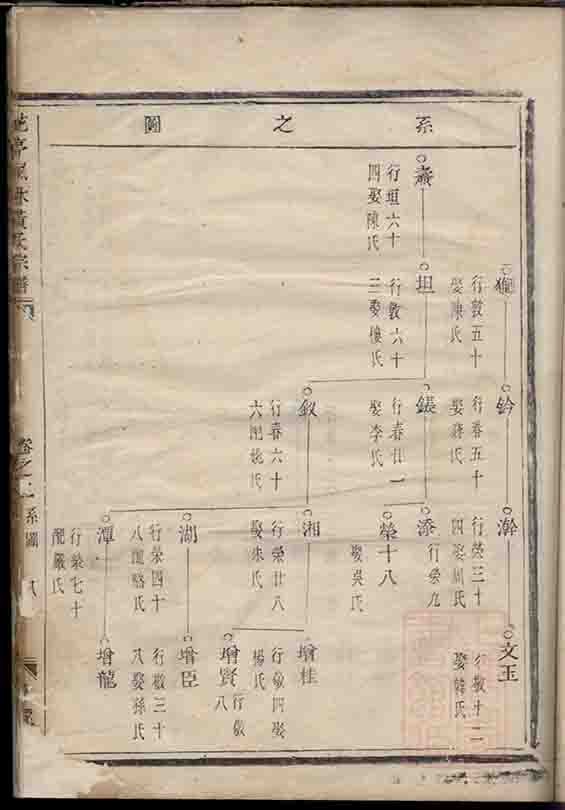 系之圖
燾
行垣六十
四娶陳氏
行敦五十
娶陳氏
坦
行敦六十
三娶樓氏
鈐
行春五十
娶蔣氏
錶
行春廿一
娶李氏
釵
行春六十
六配姚氏
澣
行榮三十
四娶周氏
添
行榮九
榮十八
娶吳氏
湘
行榮廿八
娶朱氏
湖
行榮四十
八配駱氏
潭
行榮七十
配嚴氏
文玉
行敬十二
娶韓氏
增桂
行敬四娶
楊氏
增賢
行敬
八
增臣
行敬三十
八娶孫氏
增龍
黃氏宗譜
卷之
系圖